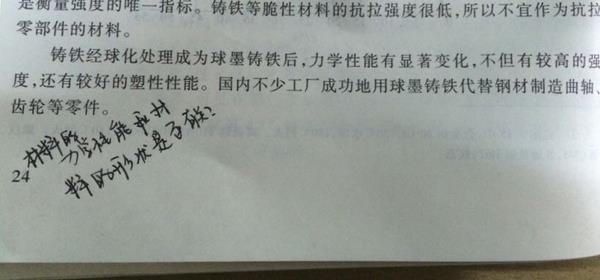 是衡量强度的唯一指标。铸铁等脆性材料的抗拉强度很低，所以不宜作为抗拉
零部件的材料。
铸铁经球化处理成为球墨铸铁后，力学性能有显著变化，不但有较高的强
度，还有较好的塑性性能。国内不少工厂成功地用球墨铸铁代替钢材制造曲轴、
齿轮等零件。
材料的
力学性能和材
料的形状是否有
24